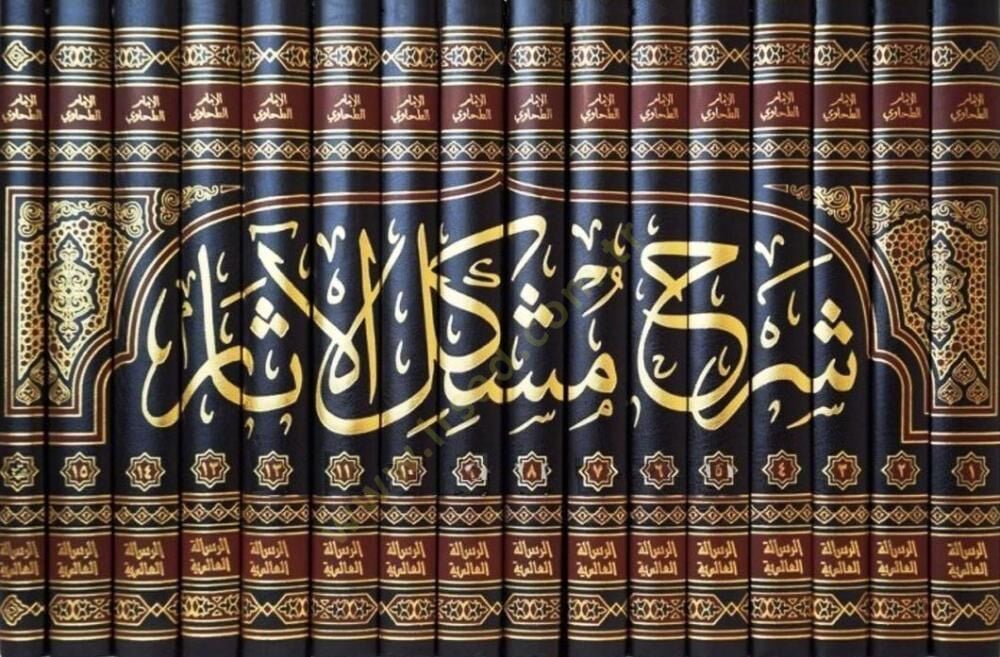 الإمام الإمام الإمام الإمام الإمام الإمام الإمام الإمام الإمام الإمام الإمام الإمام الإمام الإمام الإمام الإمام
الطحاوي الطحاوي الطحاوي الطحاوي الطحاوي الطحاوي الطحاوي الطحاوي الطحاوي الطحاوي الطحاوي الطحاوي الطحاوي الطحاوي الطحاوي الطحاوي
شرح مشكل الآثار
١ ٢ ٣ ٤ ٥ ٦ ٧ ٨ ٩ ١٠ ١١ ١٢ ١٣ ١٤ ١٥
الرسالة الرسالة الرسالة الرسالة الرسالة الرسالة الرسالة الرسالة الرسالة الرسالة الرسالة الرسالة الرسالة الرسالة الرسالة الرسالة
العالمية العالمية العالمية العالمية العالمية العالمية العالمية العالمية العالمية العالمية العالمية العالمية العالمية العالمية العالمية العالمية